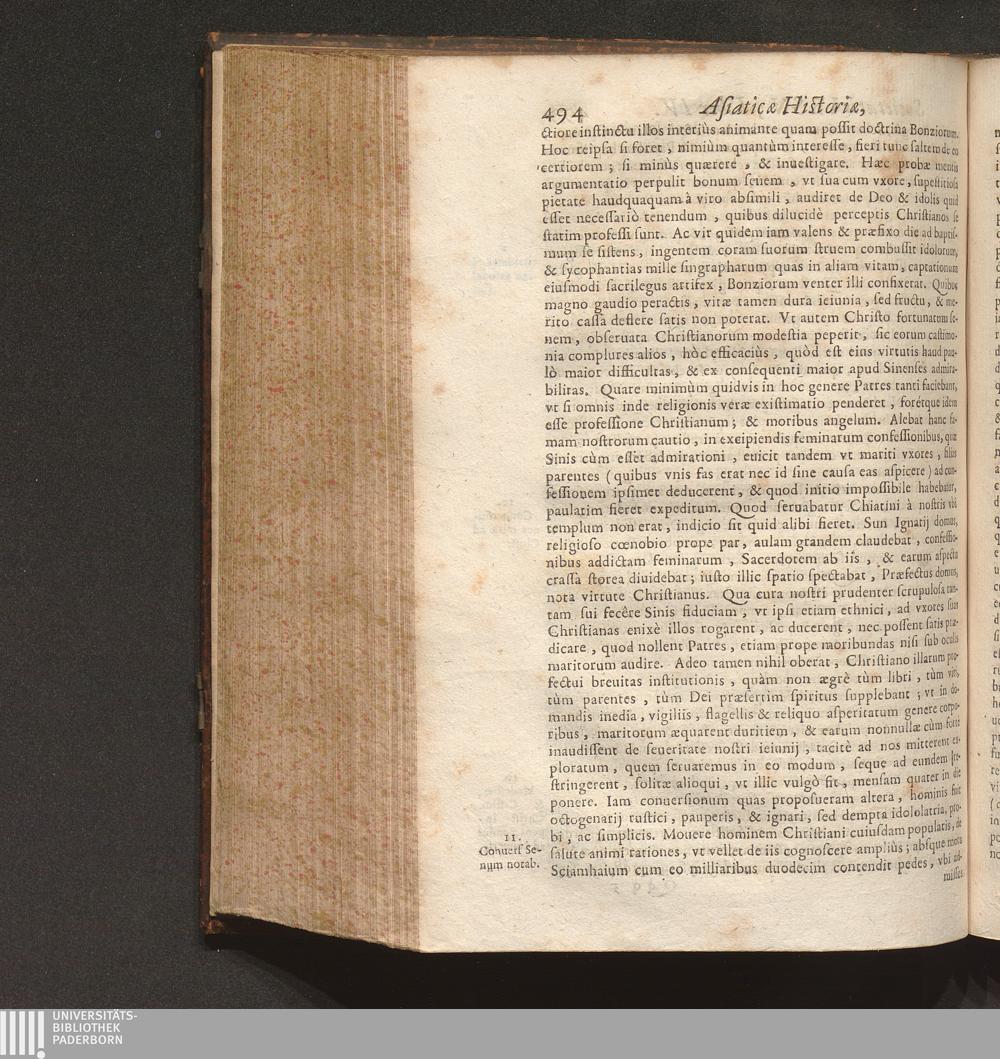 494 Aſiaticæ Hiſtoriæ,
ctiore inſtinctu illos interiùs animante quam poſſit doctrina Bonziorum.
Hoc reipſa ſi foret, nimiùm quantùm intereſſe, fieri tunc ſaltem de eo
certiorem; ſi minùs quærere, & inueſtigare. Hæc probæ mentis
argumentatio perpulit bonum ſenem, vt ſua cum vxore, ſuperſtitioſa
pietate haudquaquam à viro abſimili, audiret de Deo & idolis quid
eſſet neceſſariò tenendum, quibus dilucidè perceptis Chriſtianos ſe
ſtatim profeſſi ſunt. Ac vir quidem iam valens & præfixo die ad baptiſ-
mum ſe ſiſtens, ingentem coram ſuorum ſtruem combuſſit idolorum,
& ſycophantias mille ſingrapharum quas in aliam vitam, captationum
eiuſmodi ſacrilegus artifex, Bonziorum venter illi confixerat. Quibus
magno gaudio peractis, vitæ tamen dura ieiunia, ſed fructu, & me-
rito caſſa deflere ſatis non poterat. Vt autem Chriſto fortunatum ſe-
nem, obſeruata Chriſtianorum modeſtia peperit, ſic eorum caſtimo-
nia complures alios, hòc efficaciùs, quòd eſt eius virtutis haud pau-
lò maior difficultas, & ex conſequenti maior apud Sinenſes admira-
bilitas. Quare minimùm quidvis in hoc genere Patres tanti faciebant,
vt ſi omnis inde religionis veræ exiſtimatio penderet, forétque idem
eſſe profeſſione Chriſtianum; & moribus angelum. Alebat hanc fa-
mam noſtrorum cautio, in excipiendis feminarum confeſſionibus, quæ
Sinis cùm eſſet admirationi, euicit tandem vt mariti vxores, filias
parentes (quibus vnis fas erat nec id ſine cauſa eas aſpicere) ad con-
feſſionem ipſimet deducerent, & quod initio impoſſibile habebatur,
paulatim fieret expeditum. Quod ſeruabatur Chiatini à noſtris vbi
templum non erat, indicio ſit quid alibi fieret. Sun Ignatij domus,
religioſo cœnobio prope par, aulam grandem claudebat, confeſſio-
nibus addictam feminarum, Sacerdotem ab iis, & earum aſpectu
craſſa ſtorea diuidebat; iuſto illic ſpatio ſpectabat, Præfectus domus,
nota virtute Chriſtianus. Qua cura noſtri prudenter ſcrupuloſa tan-
tam ſui fecêre Sinis fiduciam, vt ipſi etiam ethnici, ad vxores ſuas
Chriſtianas enixè illos rogarent, ac ducerent, nec poſſent ſatis præ-
dicare, quod nollent Patres, etiam prope moribundas niſi ſub oculis
maritorum audire. Adeo tamen nihil oberat, Chriſtiano illarum pro-
fectui breuitas inſtitutionis, quàm non ægrè tùm libri, tùm viri,
tùm parentes, tùm Dei præſertim ſpiritus ſupplebant; vt in do-
mandis inedia, vigiliis, flagellis & reliquo aſperitatum genere corpo-
ribus, maritorum æquarent duritiem, & earum nonnullæ cùm fortè
inaudiſſent de ſeueritate noſtri ieiunij, tacitè ad nos mitterent ex-
ploratum, quem ſeruaremus in eo modum, ſeque ad eundem
ſtringerent, ſolitæ alioqui, vt illic vulgò fit, menſam quater in die
ponere. Iam conuerſionum quas propoſueram altera, hominis fuit
octogenarij ruſtici, pauperis, & ignari, ſed dempta idololatria, pro-
bi, ac ſimplicis. Mouere hominem Chriſtiani cuiuſdam popularis, de
ſalute animi rationes, vt vellet de iis cognoſcere ampliùs; abſque
Sciamhaium cum eo milliaribus duodecim contendit pedes, vbi ad-
miſſus
11.
Conuerſ Se-
num notab.
UNIVERSITÄTS-
BIBLIOTHEK
PADERBORN